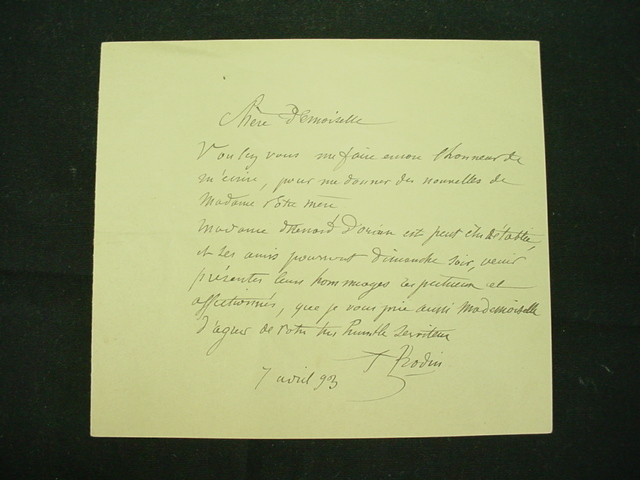 Chère Demoiselle
Voulez vous me faire encore l'honneur de
m'écrire, pour me donner des nouvelles de
Madame votre mère
Madame Menard Dorian est peut être rétablie,
et ses amis pourront dimanche soir, venir
présenter leurs hommages respectueux et
affectionnés, que je vous prie aussi Mademoiselle
d'agréer de votre très humble serviteur
A Rodin
7 avril 93